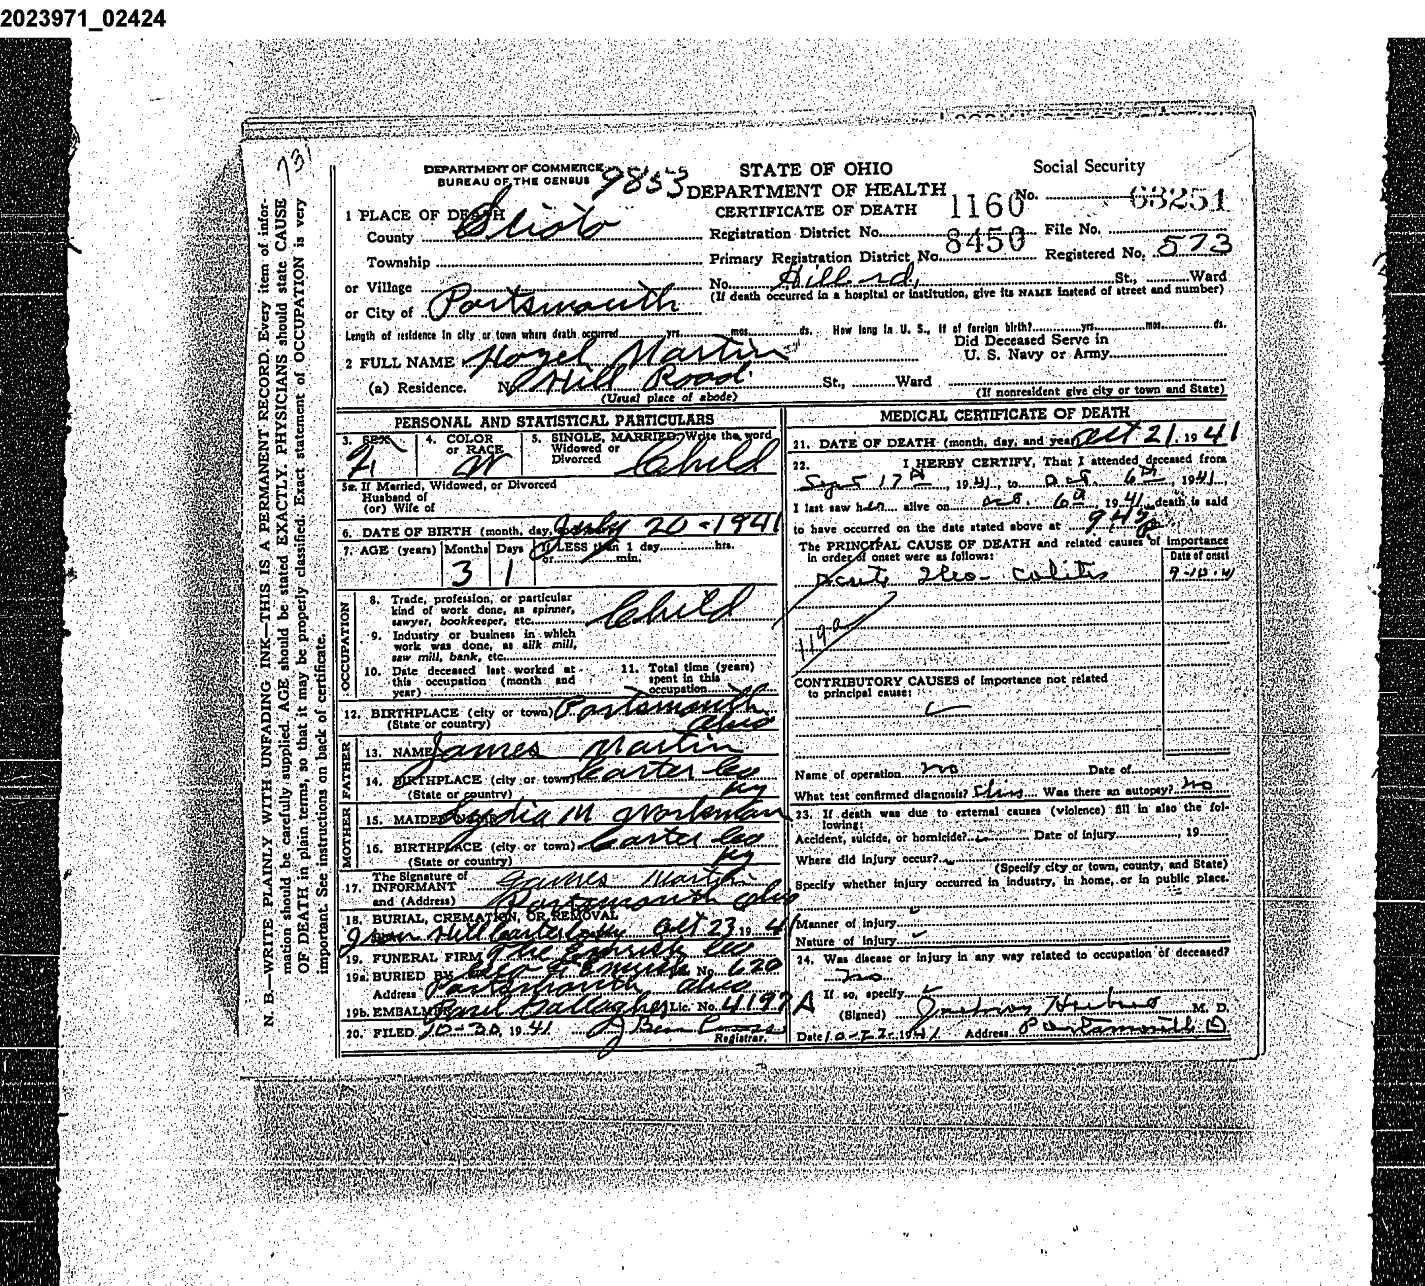 2023971_02424
731
DEPARTMENT OF COMMERCE
BUREAU OF THE CENSUS
9853
STATE OF OHIO
DEPARTMENT OF HEALTH
CERTIFICATE OF DEATH
Social Security
No. 63251
1 PLACE OF DEATH
County Scioto
Registration District No. 1160 File No.
Township
Primary Registration District No. 8450 Registered No. 573
or Village
No. Hill rd, St., Ward
(If death occurred in a hospital or institution, give its NAME instead of street and number)
or City of Portsmouth
Length of residence in city or town where death occurred yrs. mos. ds. How long in U. S., if of foreign birth? yrs. mos. ds.
Did Deceased Serve in
U. S. Navy or Army
2 FULL NAME Hazel Martin
(a) Residence. No Hill Road St., Ward
(Usual place of abode) (If nonresident give city or town and State)
PERSONAL AND STATISTICAL PARTICULARS
3. SEX F.
4. COLOR or RACE W
5. SINGLE, MARRIED, Write the word
Widowed or
Divorced Child
5a. If Married, Widowed, or Divorced
Husband of
(or) Wife of
6. DATE OF BIRTH (month, day, July 20-1941
7. AGE (years) Months Days If LESS than 1 day hrs.
or min.
3 1
OCCUPATION
8. Trade, profession, or particular
kind of work done, as spinner,
sawyer, bookkeeper, etc. Child
9. Industry or business in which
work was done, as silk mill,
saw mill, bank, etc.
10. Date deceased last worked at
this occupation (month and
year)
11. Total time (years)
spent in this
occupation
12. BIRTHPLACE (city or town) Portsmouth
(State or country) Ohio
FATHER
13. NAME James Martin
14. BIRTHPLACE (city or town) Carter Co
(State or country) Ky
MOTHER
15. MAIDEN Lydia M
16. BIRTHPLACE (city or town) Carter Co
(State or country) Ky
17. The Signature of
INFORMANT James Martin
and (Address) Portsmouth Ohio
18. BURIAL, CREMATION, OR REMOVAL
Hill Carter Co Ky Oct 23 1941
19. FUNERAL FIRM The Emrick Co
19a. BURIED BY Emrick No. 620
Address Portsmouth Ohio
19b. EMBALMER Gallagher Lic. No. 4197A
20. FILED 10-30, 1941
Registrar.
MEDICAL CERTIFICATE OF DEATH
21. DATE OF DEATH (month, day, and year) Oct 21, 1941
22. I HERBY CERTIFY, That I attended deceased from
17th, 1941, to Oct. 6th, 1941,
I last saw her alive on Oct. 6th, 1941, death is said
to have occurred on the date stated above at
The PRINCIPAL CAUSE OF DEATH and related causes of importance
in order of onset were as follows:
Date of onset
Acute Ileo-Colitis 9-10-41
119a
CONTRIBUTORY CAUSES of importance not related
to principal cause:
Name of operation no Date of
What test confirmed diagnosis? Clin. Was there an autopsy? no
23. If death was due to external causes (violence) fill in also the fol-
lowing:
Accident, suicide, or homicide? Date of injury, 19
Where did injury occur?
(Specify city or town, county, and State)
Specify whether injury occurred in industry, in home, or in public place.
Manner of injury
Nature of injury
24. Was disease or injury in any way related to occupation of deceased?
no
If so, specify
(Signed) M. D.
Date 10-22-1941 Address Portsmouth O
N. B.—WRITE PLAINLY WITH UNFADING INK—THIS IS A PERMANENT RECORD. Every item of infor-
mation should be carefully supplied. AGE should be stated EXACTLY. PHYSICIANS should state CAUSE
OF DEATH in plain terms, so that it may be properly classified. Exact statement of OCCUPATION is very
important. See instructions on back of certificate.